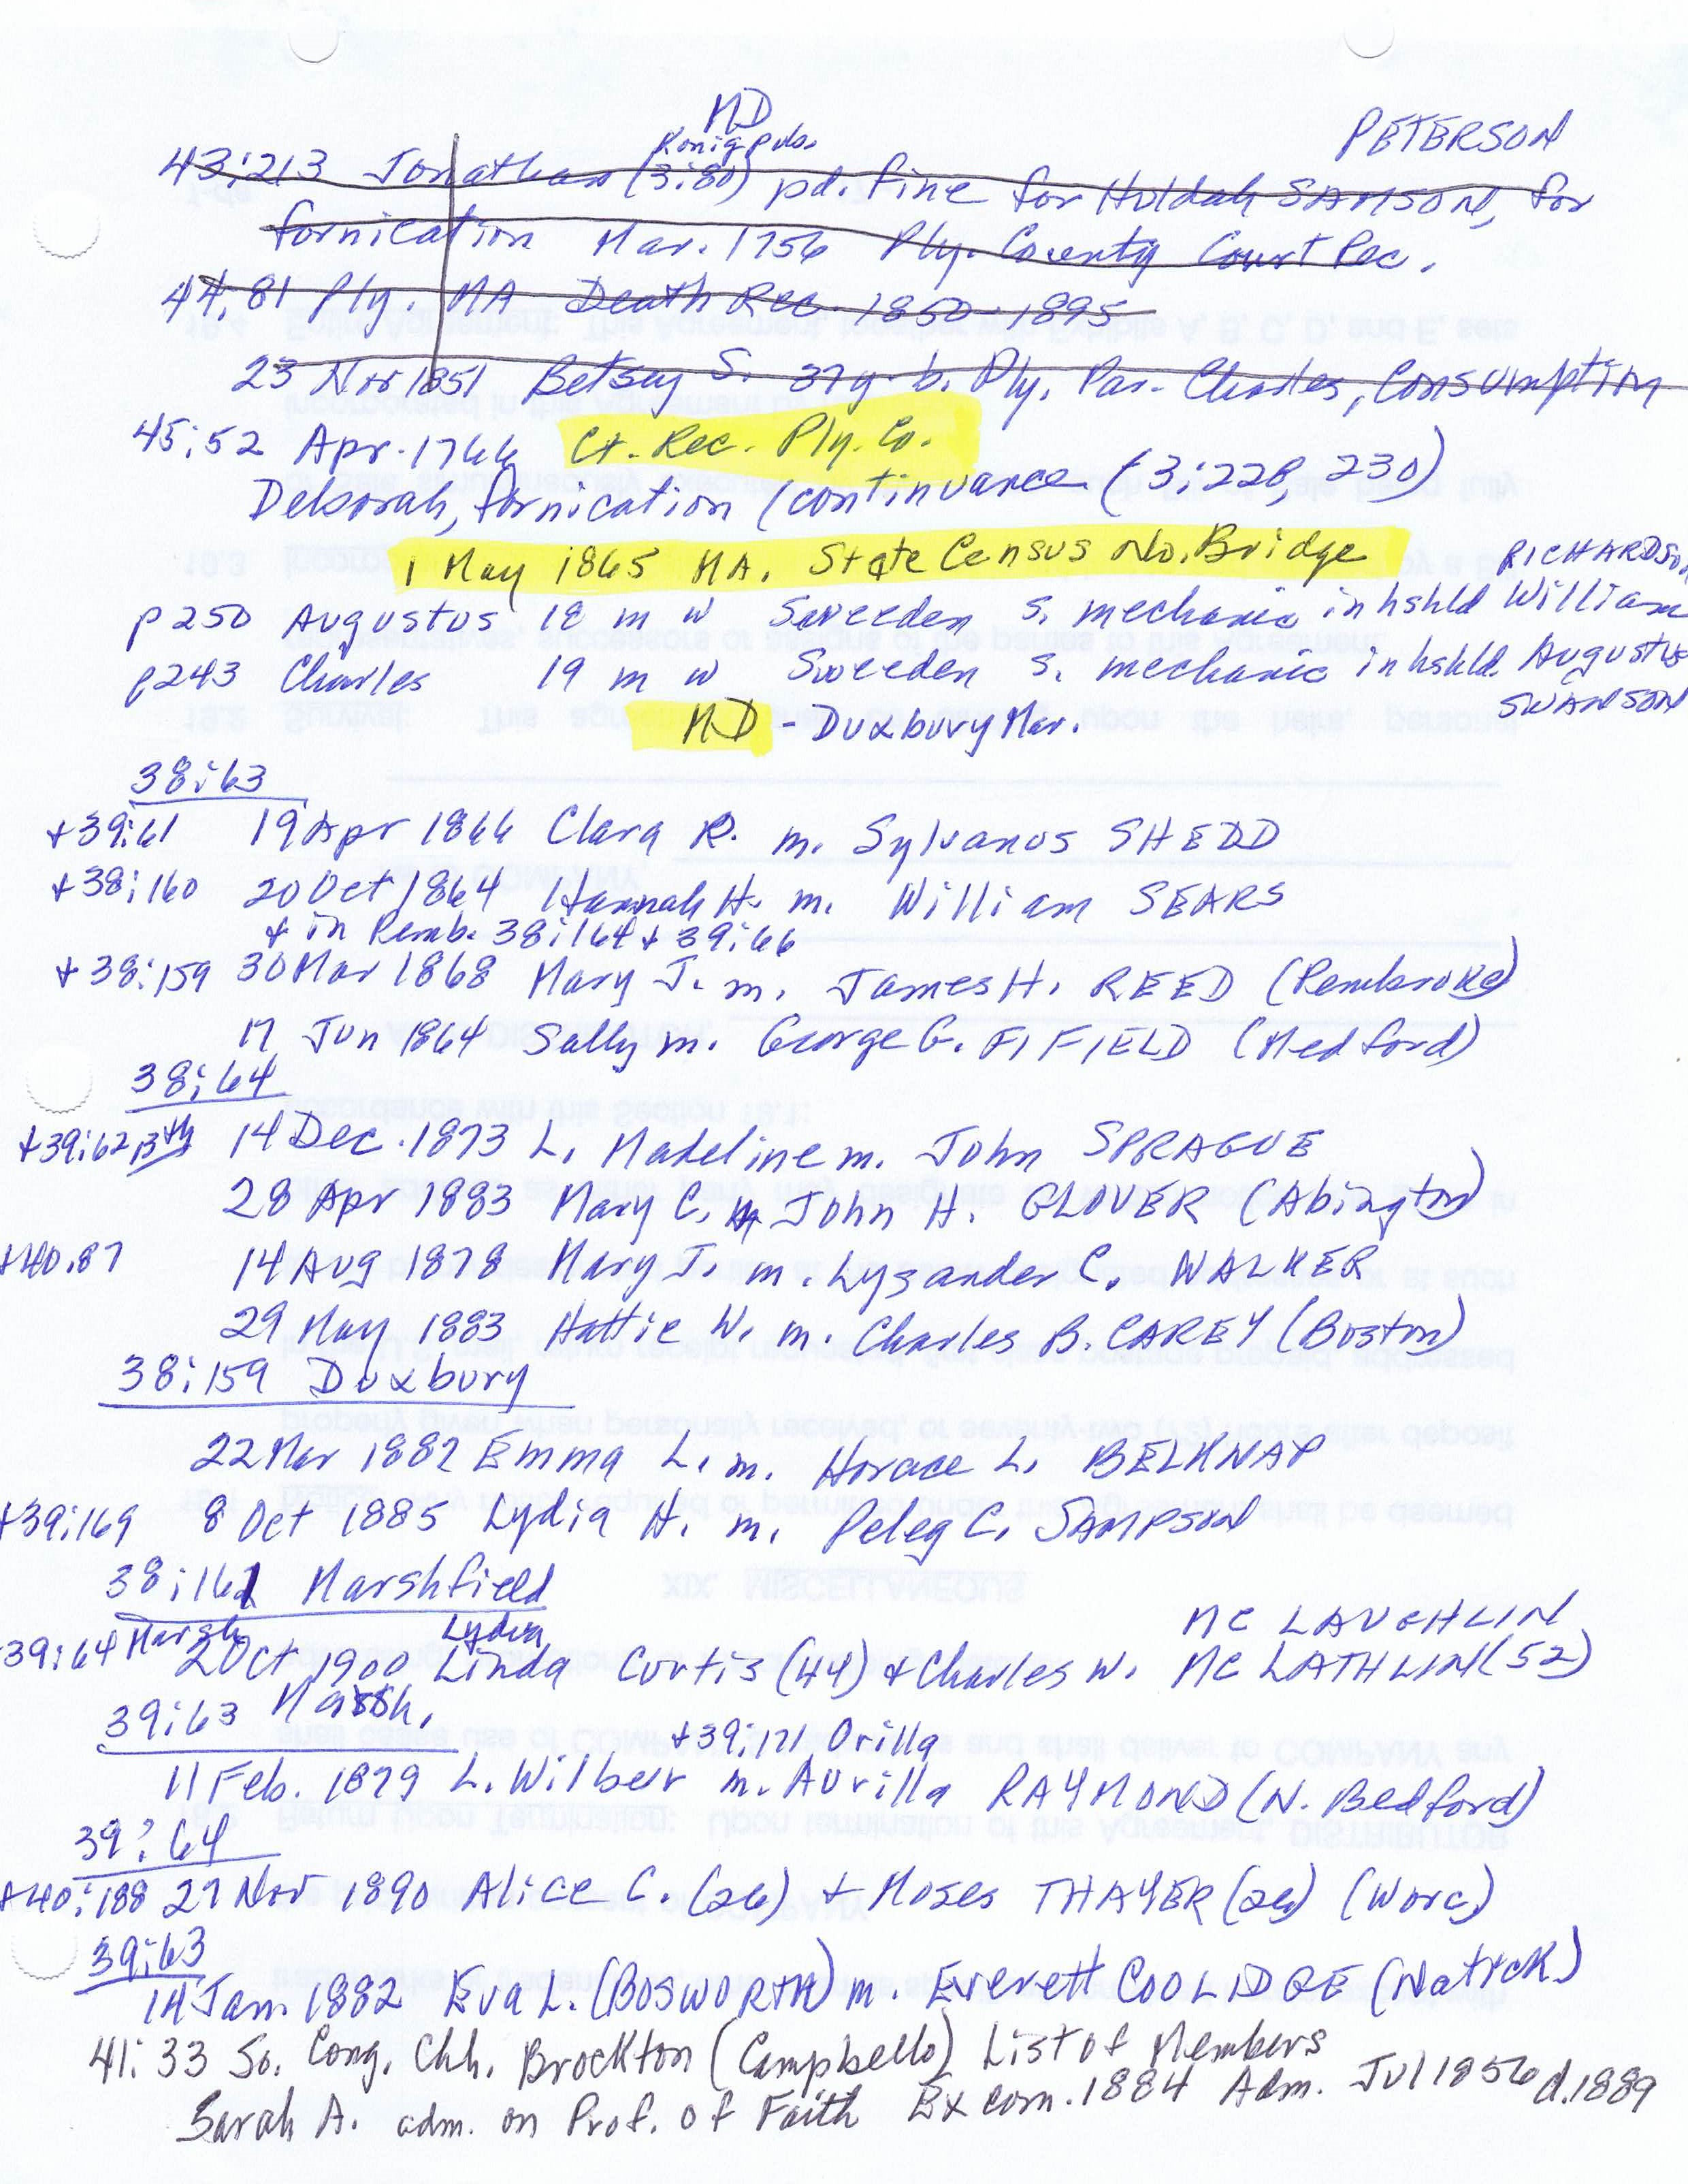 MD
Konig pubs.
PETERSON
43:213 Jonathan (3:80) pd. fine for Huldah SAMSON, for
fornication Mar. 1756 Ply. County Court Rec.
44:81 Ply. MA Death Rec. 1850-1895
23 Nov 1851 Betsey S. 37y. b. Ply. Par. Charles, Consumption
45:52 Apr. 1766 Ct. Rec. Ply. Co.
Deborah, fornication (continuance (3:228, 230)
1 May 1865 MA. State Census No. Bridge
RICHARDSON
p250 Augustus 18 m w Sweeden S. mechanic in hshld William
p243 Charles 19 m w Sweeden S. mechanic in hshld. Augustus
SWANSON
MD - Duxbury Mar.
38:63
+39:61 19 Apr 1866 Clara R. m. Sylvanus SHEDD
+38:160 20 Oct 1864 Hannah H. m. William SEARS
+ in Pemb. 38:164 + 39:66
+38:159 30 Mar 1868 Mary J. m. James H. REED (Pembroke)
17 Jun 1864 Sally m. George G. FIFIELD (Medford)
38:64
+39:62 13th 14 Dec. 1873 L. Madeline m. John SPRAGUE
28 Apr 1883 Mary C. m John H. GLOVER (Abington)
+40:87 14 Aug 1878 Mary J. m. Lyzander C. WALKER
29 May 1883 Hattie W. m. Charles B. CAREY (Boston)
38:159 Duxbury
22 Mar 1882 Emma L. m. Horace L. BELKNAP
+39:169 8 Oct 1885 Lydia H. m. Peleg C. SAMPSON
38:161 Marshfield
Marsh Lydia MC LAUGHLIN
39:64 2 Oct 1900 Linda Curtis (44) + Charles W. MC LATHLIN (52)
39:63 Marsh.
+39:171 Orilla
11 Feb. 1879 L. Wilbur m. Aurilla RAYMOND (N. Bedford)
39:64
+40:188 27 Nov 1890 Alice C. (26) + Moses THAYER (26) (Worc)
39:63
14 Jan. 1882 Eva L. (BOSWORTH) m. Everett COOLIDGE (Natick)
41:33 So. Cong. Chh. Brockton (Campbello) List of Members
Sarah A. adm. on Prof. of Faith Excom. 1884 Adm. Jul 1856 d. 1889